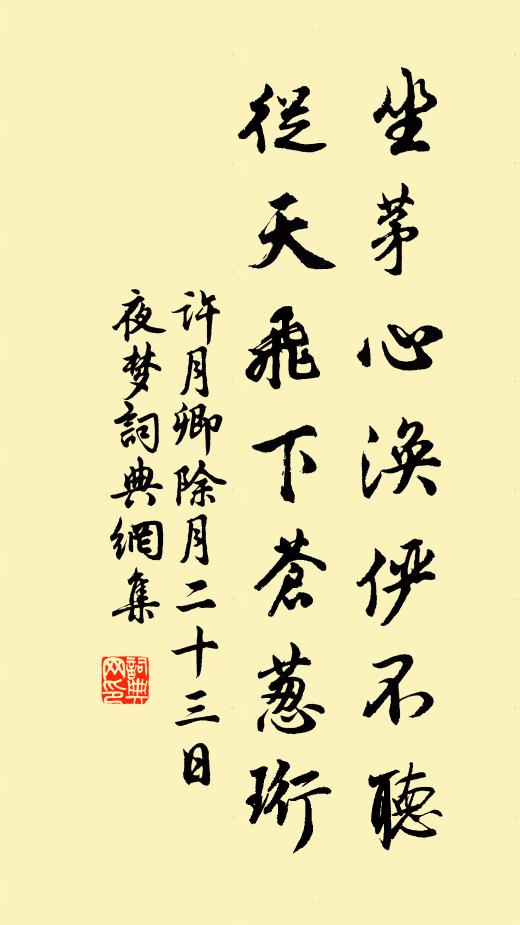 坐茅心渙伻不聽
從天飛下蒼蔥珩
許月卿除月二十三日
夜梦詞典網集
詞典网印